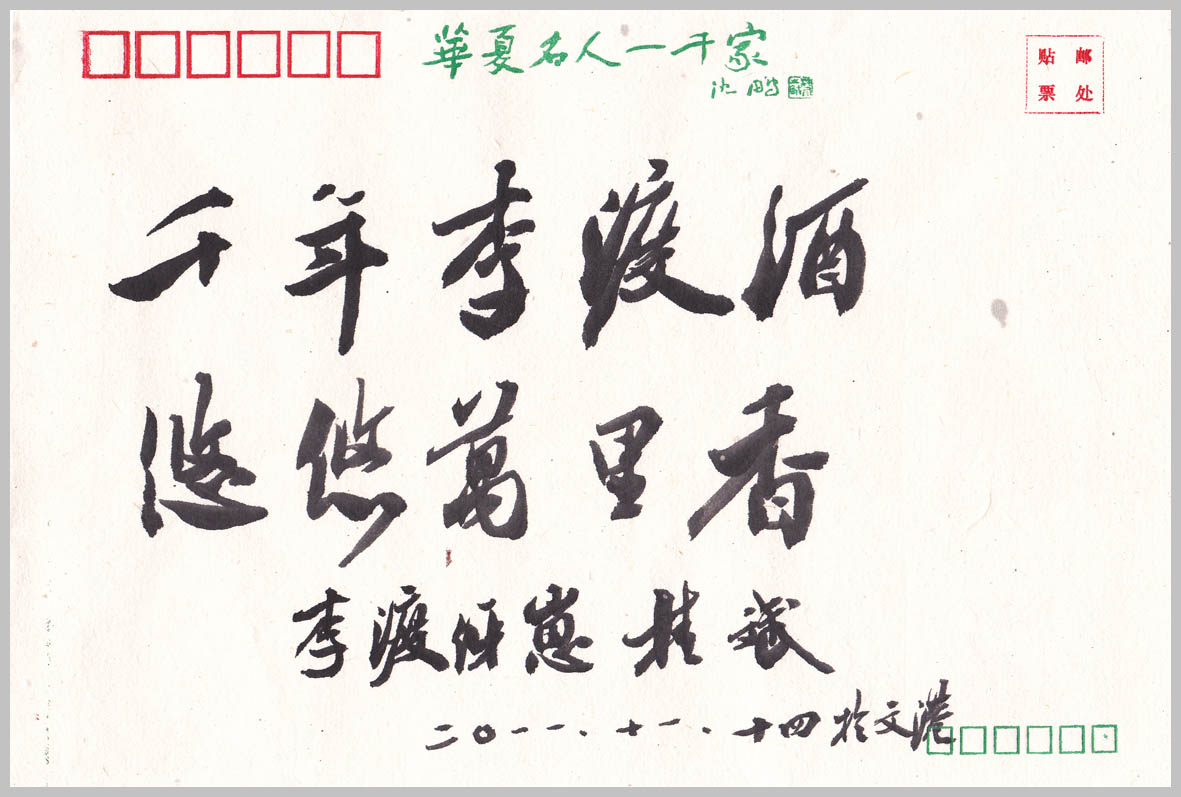 華夏名人一千家
沈鹏
贴 邮
票 处
千年李渡酒
悠悠萬里香
李渡
二〇一一、十一、十四於文港